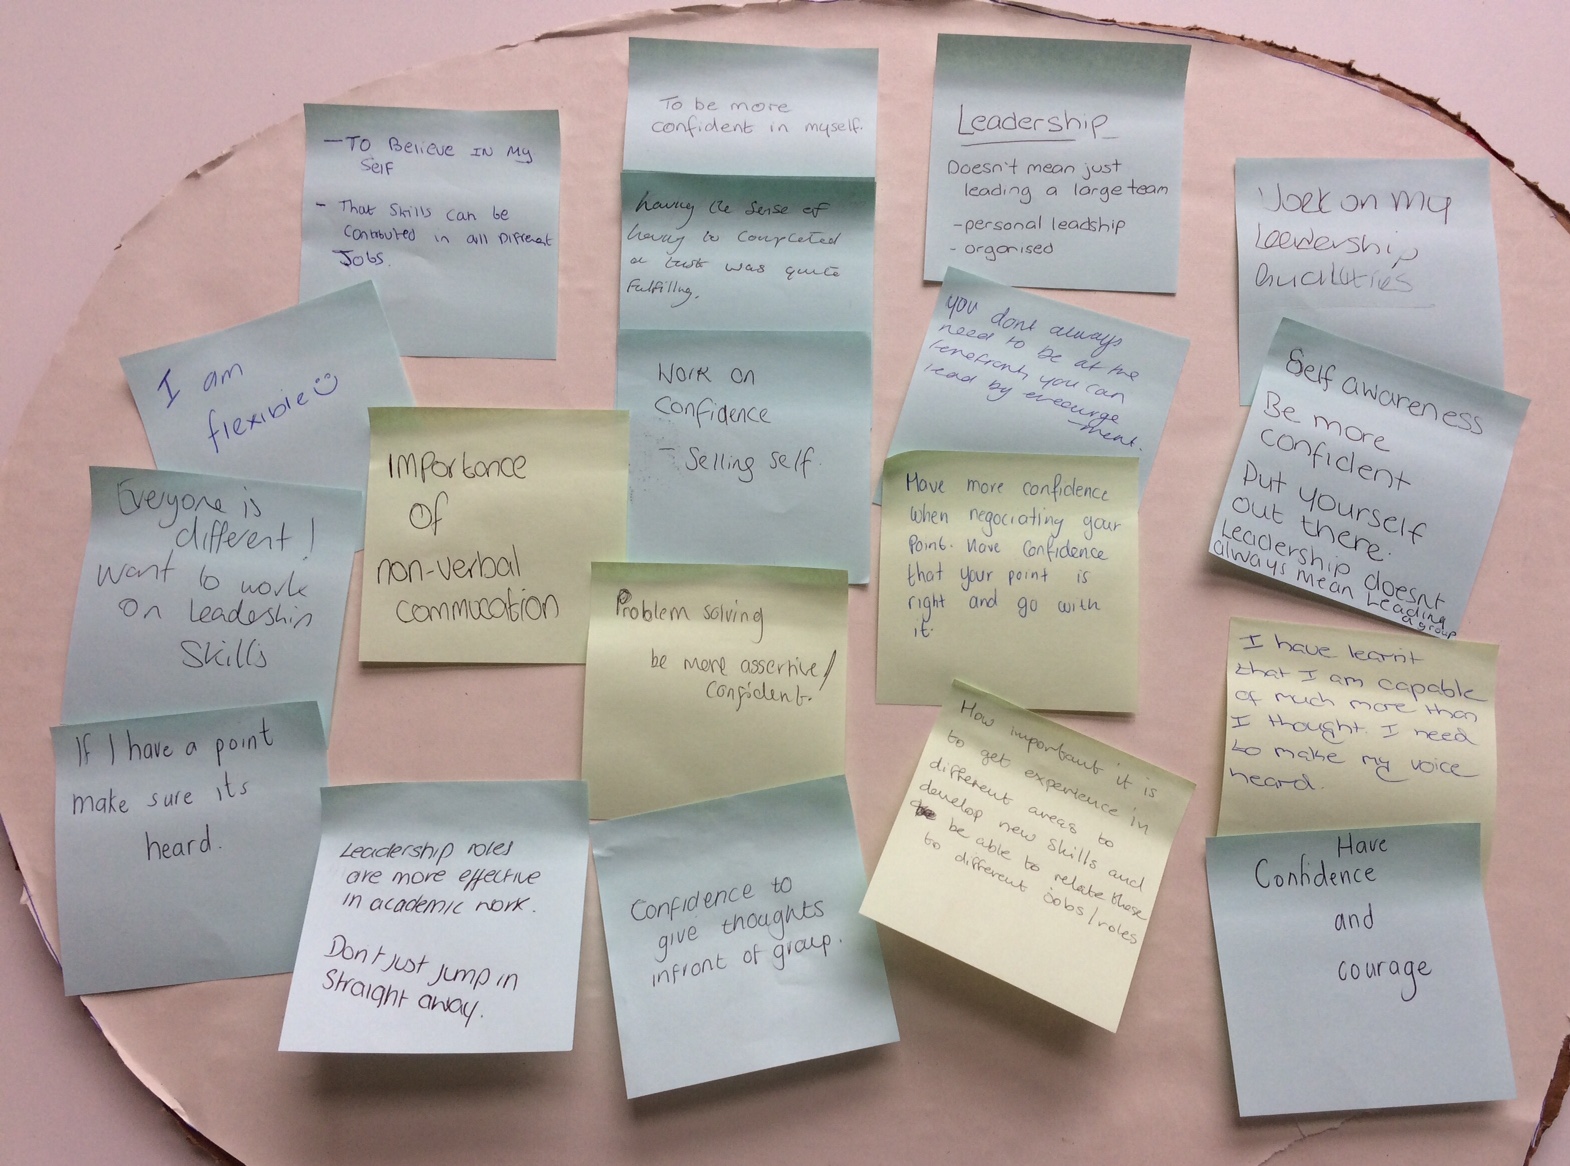 - To Believe IN My
Self
- That Skills can be
Contributed in all Different
Jobs.
To be more
confident in myself.
having the sense of
having to completed
a task was quite
fulfilling.
Work on
Confidence
- Selling self.
Leadership
Doesn't mean just
leading a large team
- personal leadship
- organised
you done always
need to be at the
forefront, you can
lead by encourge
-ment.
Work on my
Leadership
Quallities
Self awareness
Be more
confident
Put yourself
out there.
Leadership doesnt
always mean leading
a group
I am
flexible☺
Everyone is
different!
Want to work
on leadership
Skills
Importance
of
non-verbal
commucation
Problem solving
be more assertive/
confident.
Have more confidence
when negociating your
point. Have confidence
that your point is
right and go with
it.
I have learnt
that I am capable
of much more than
I thought. I need
to make my voice
heard.
If I have a point
make sure its
heard.
Leadership roles
are more effective
in academic work.
Don't just jump in
Straight away.
Confidence to
give thoughts
infront of group.
How important it is
to get experience in
different areas to
develop new skills and
be able to relate those
to different jobs/roles
Have
Confidence
and
courage